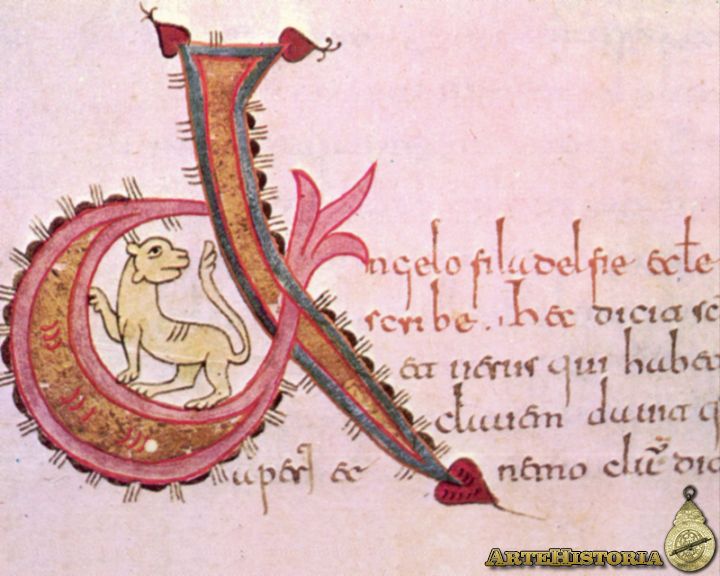 Angelo filadelfie eccle
scribe. hec dicia sc
et uerus qui habea
clauem dauia q
uperi& ec nemo clu& dic
ARTEHISTORIA